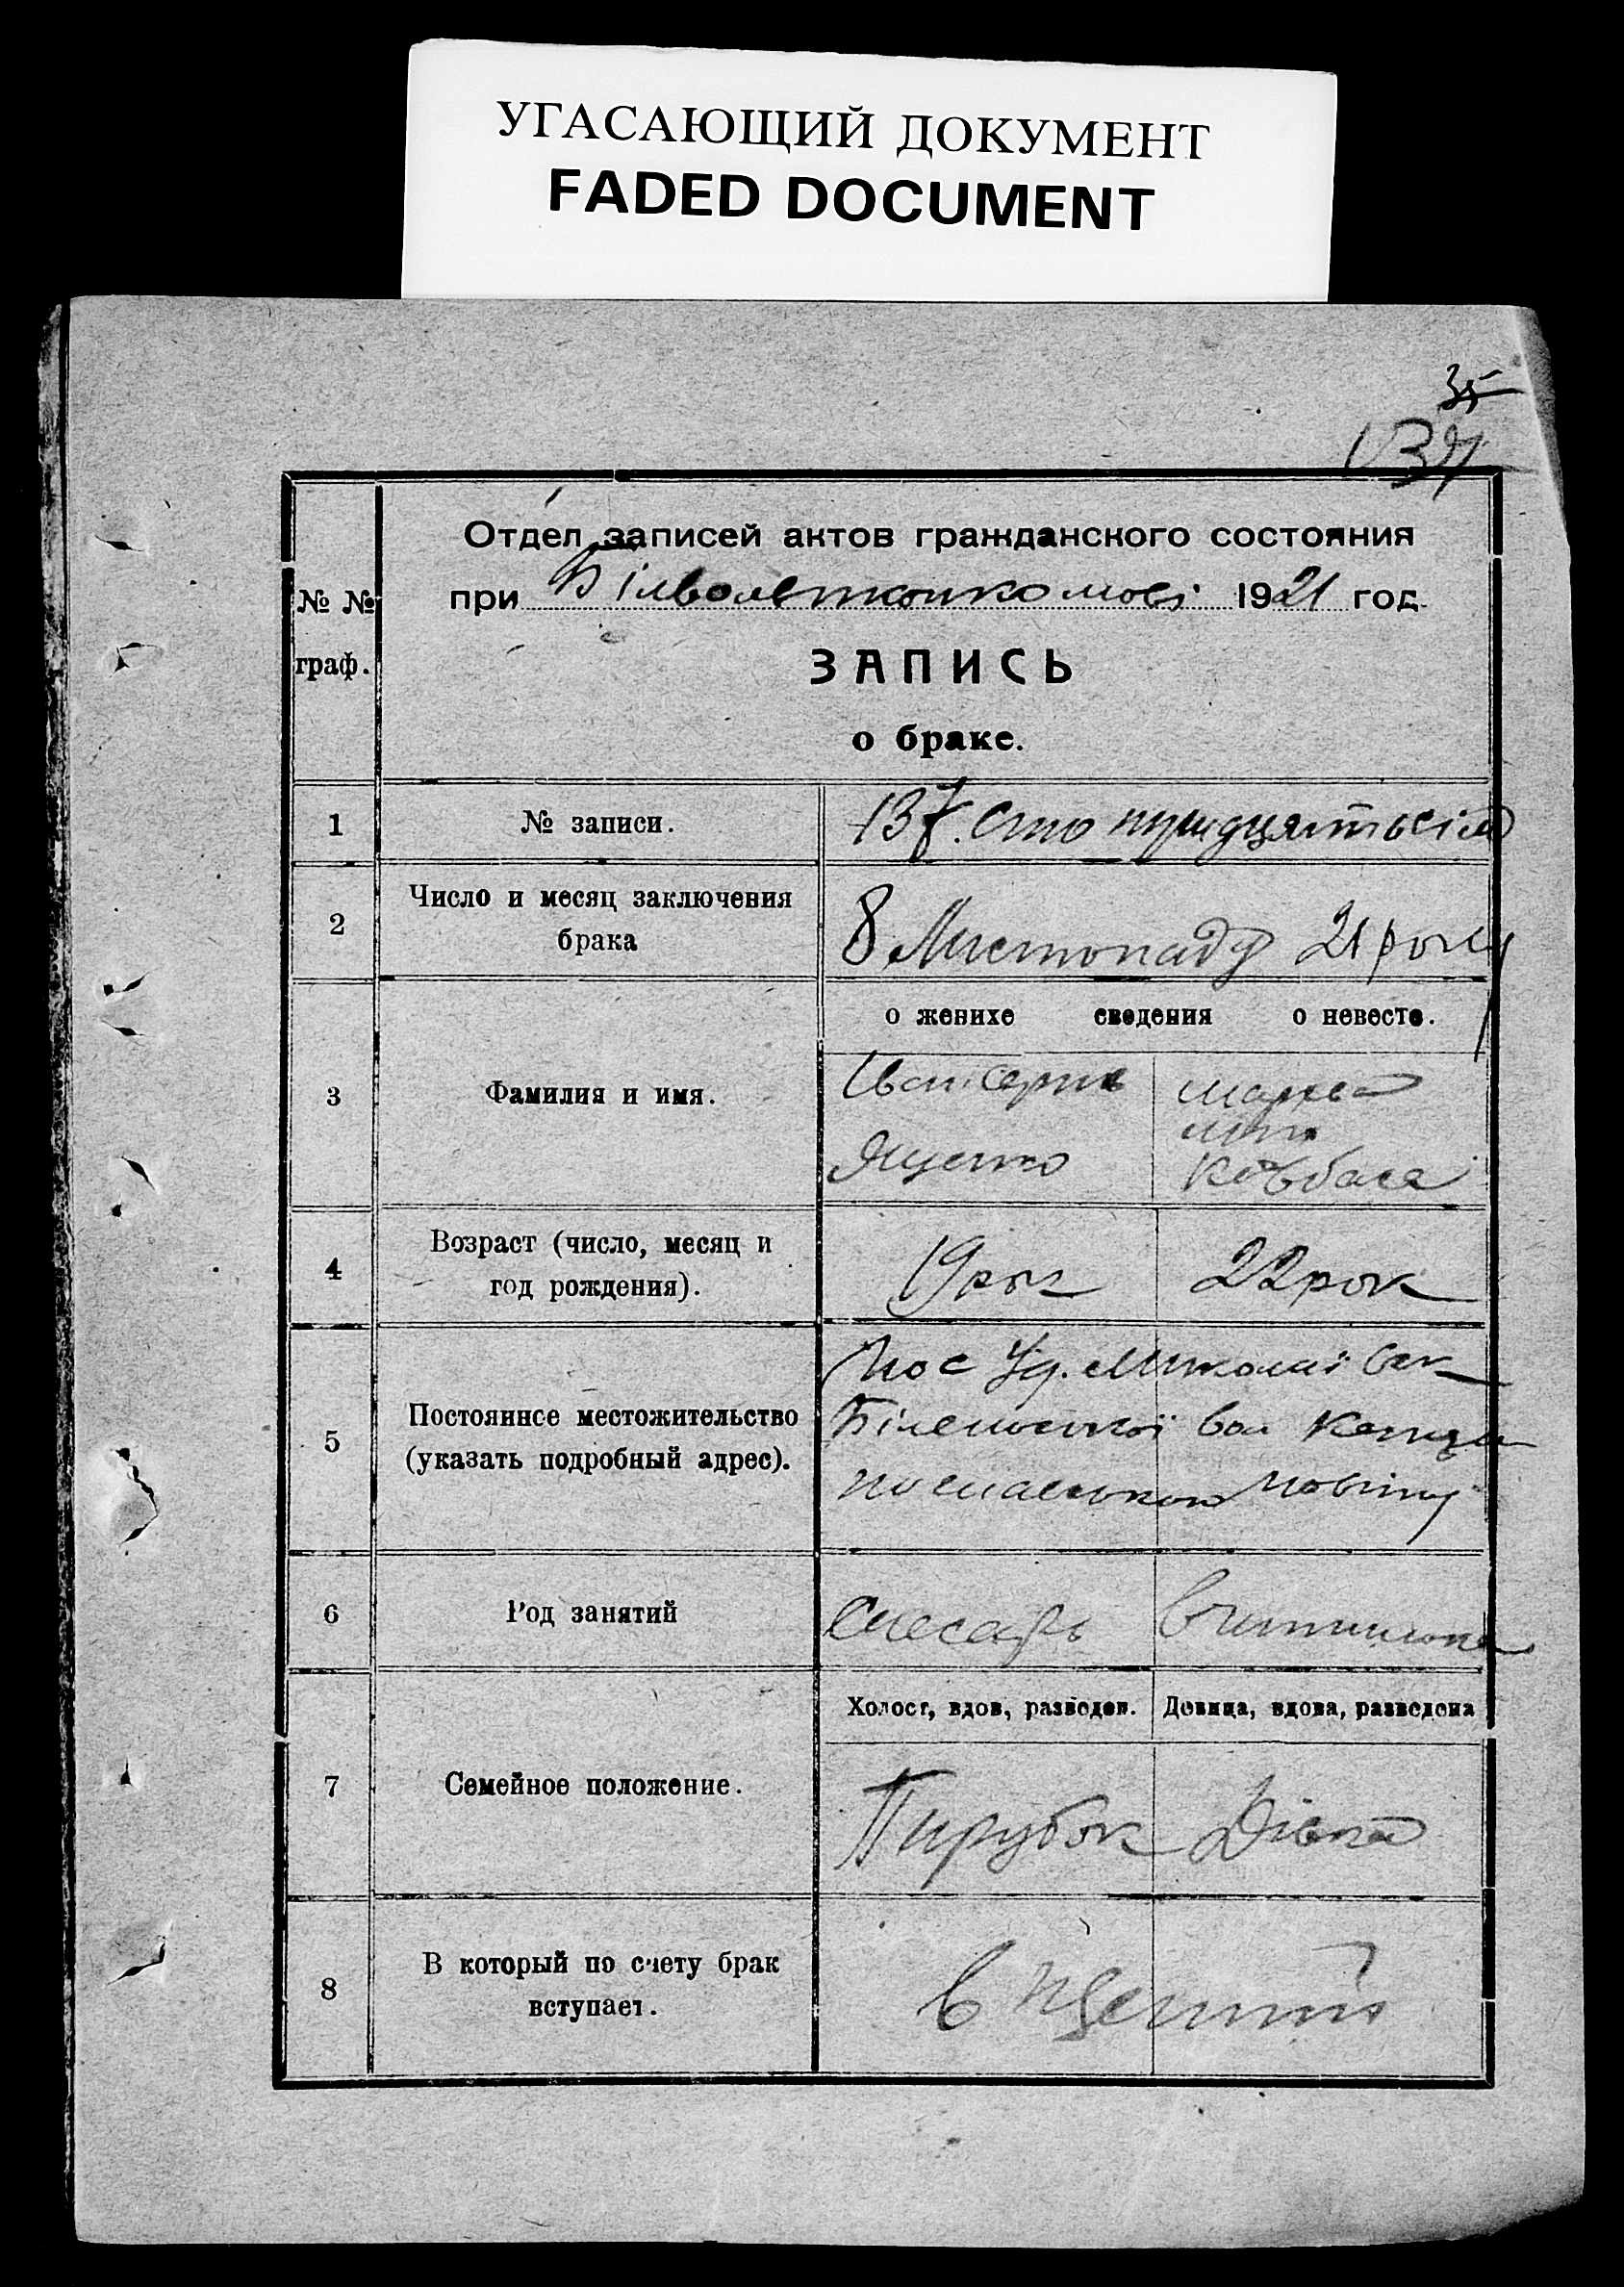 УГАСАЮЩИЙ ДОКУМЕНТ
FADED DOCUMENT
35
137
№ № граф.
Отдел записей актов гражданского состояния
при 1921 год.
ЗАПИСЬ
о браке.
1 № записи. 137. Сто тридцятьсім
2 Число и месяц заключения
брака
8 Листопаду 21 року
о женихе сведения о невесте.
3 Фамилия и имя.
Іван
Марья
Яценко
Ковбаса
4 Возраст (число, месяц и
год рождения).
19 рок 22 рок
5 Постоянное местожительство
(указать подробный адрес).
пос
повіту
6 Род занятий
Слесарь Вчителька
Холост, вдов, разведен. Девица, вдова, разведена
7 Семейное положение.
Парубок Дівка
8 В который по счету брак
вступает.
В